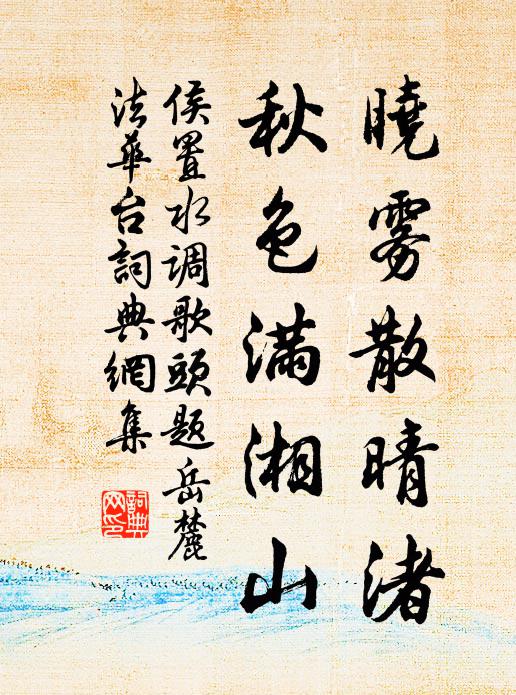 曉雾散晴渚
秋色滿湘山
侯置水调歌頭题岳麓
法華台詞典網集
詞典网印